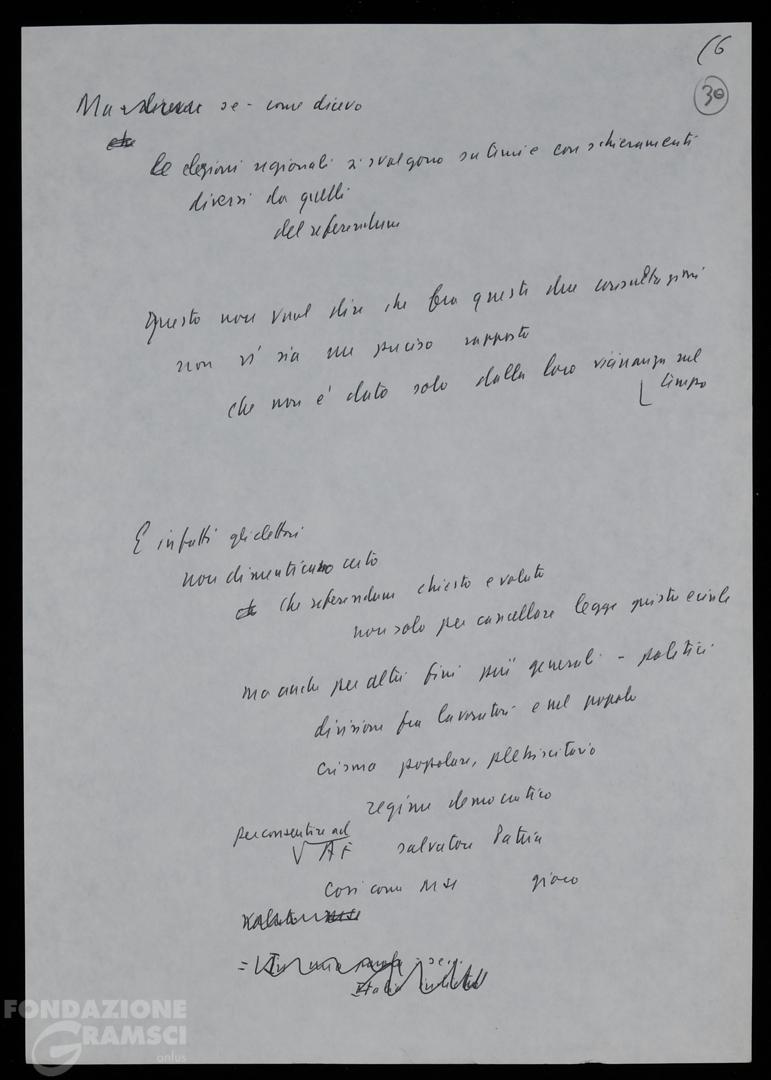 16
30
Ma se - come dicevo
che
le elezioni regionali si svolgono su temi e con schieramenti
diversi da quelli
del referendum
Questo non vuol dire che fra queste due consultazioni
non vi sia un preciso rapporto
che non è dato solo dalla loro vicinanza nel
tempo
E infatti gli elettori
non dimenticano certo
che referendum chiesto e voluto
non solo per cancellare legge giusta e civile
ma anche per altri fini più generali - politici
divisione fra lavoratori e nel popolo
crisma popolare, plebiscitario
regime democratico
per consentire ad
AF salvatore Patria
così come MSI gioco
FONDAZIONE
GRAMSCI
onlus